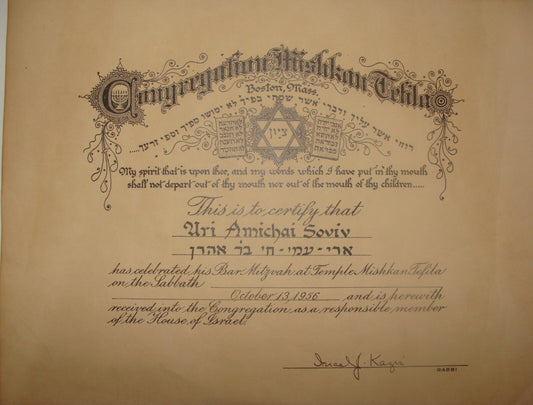 Congregation Mishkan Tefila
Boston, Mass.
רוחי אשר עליך ודברי אשר שמתי בפיך לא ימושו מפיך ומפי זרעך....
ציון
My spirit that is upon thee, and my words which I have put in thy mouth
shall not depart out of thy mouth nor out of the mouth of thy children.....
This is to certify that
Uri Amichai Soviv
ארי-עמי-חי בר אהרן
has celebrated his Bar Mitzvah at Temple Mishkan Tefila
on the Sabbath
October 13, 1956 and is herewith
received into the Congregation as a responsible member
of the House of Israel.
Israel J. Kazis
RABBI